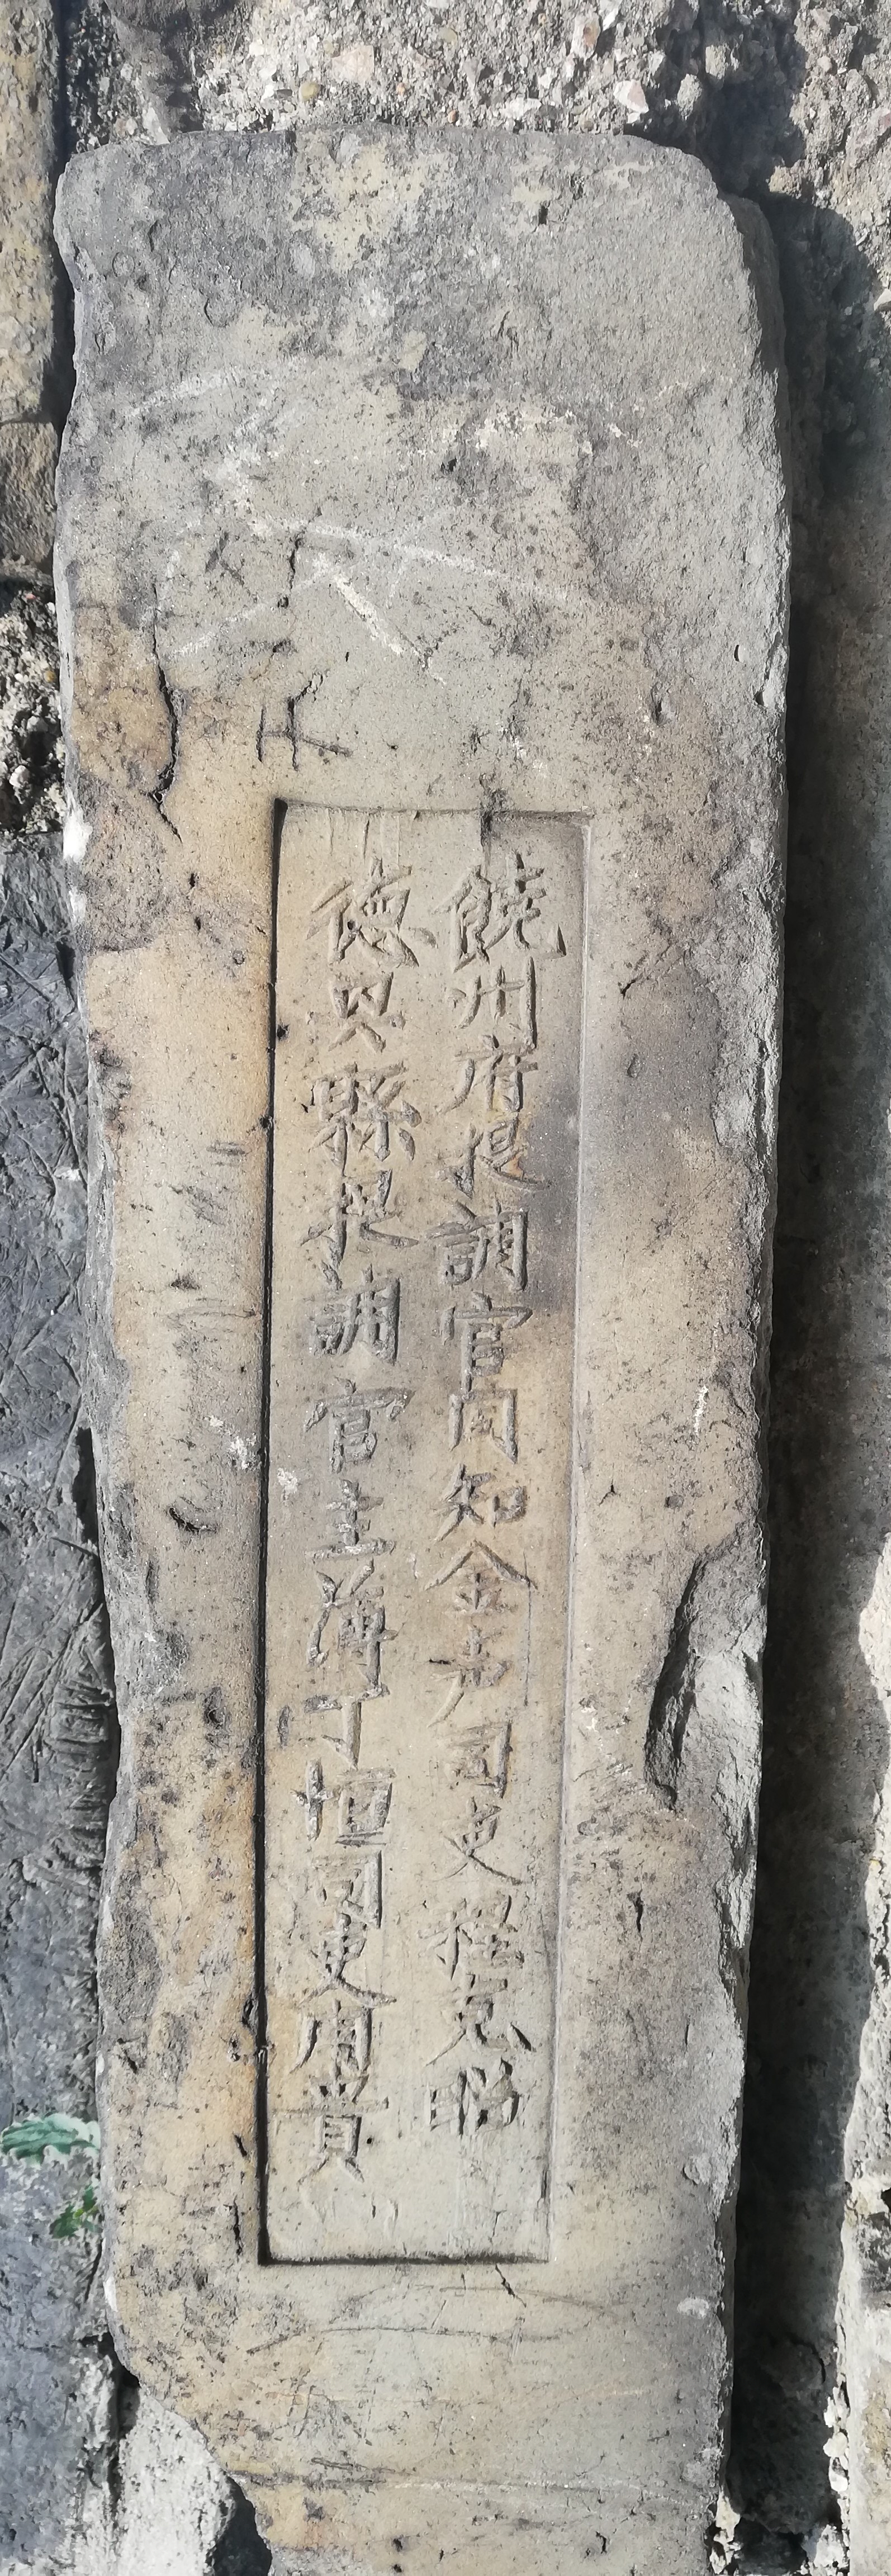 饒州府提調官同知金声司吏程克昭
德興縣提調官主簿丁垣司吏周賞